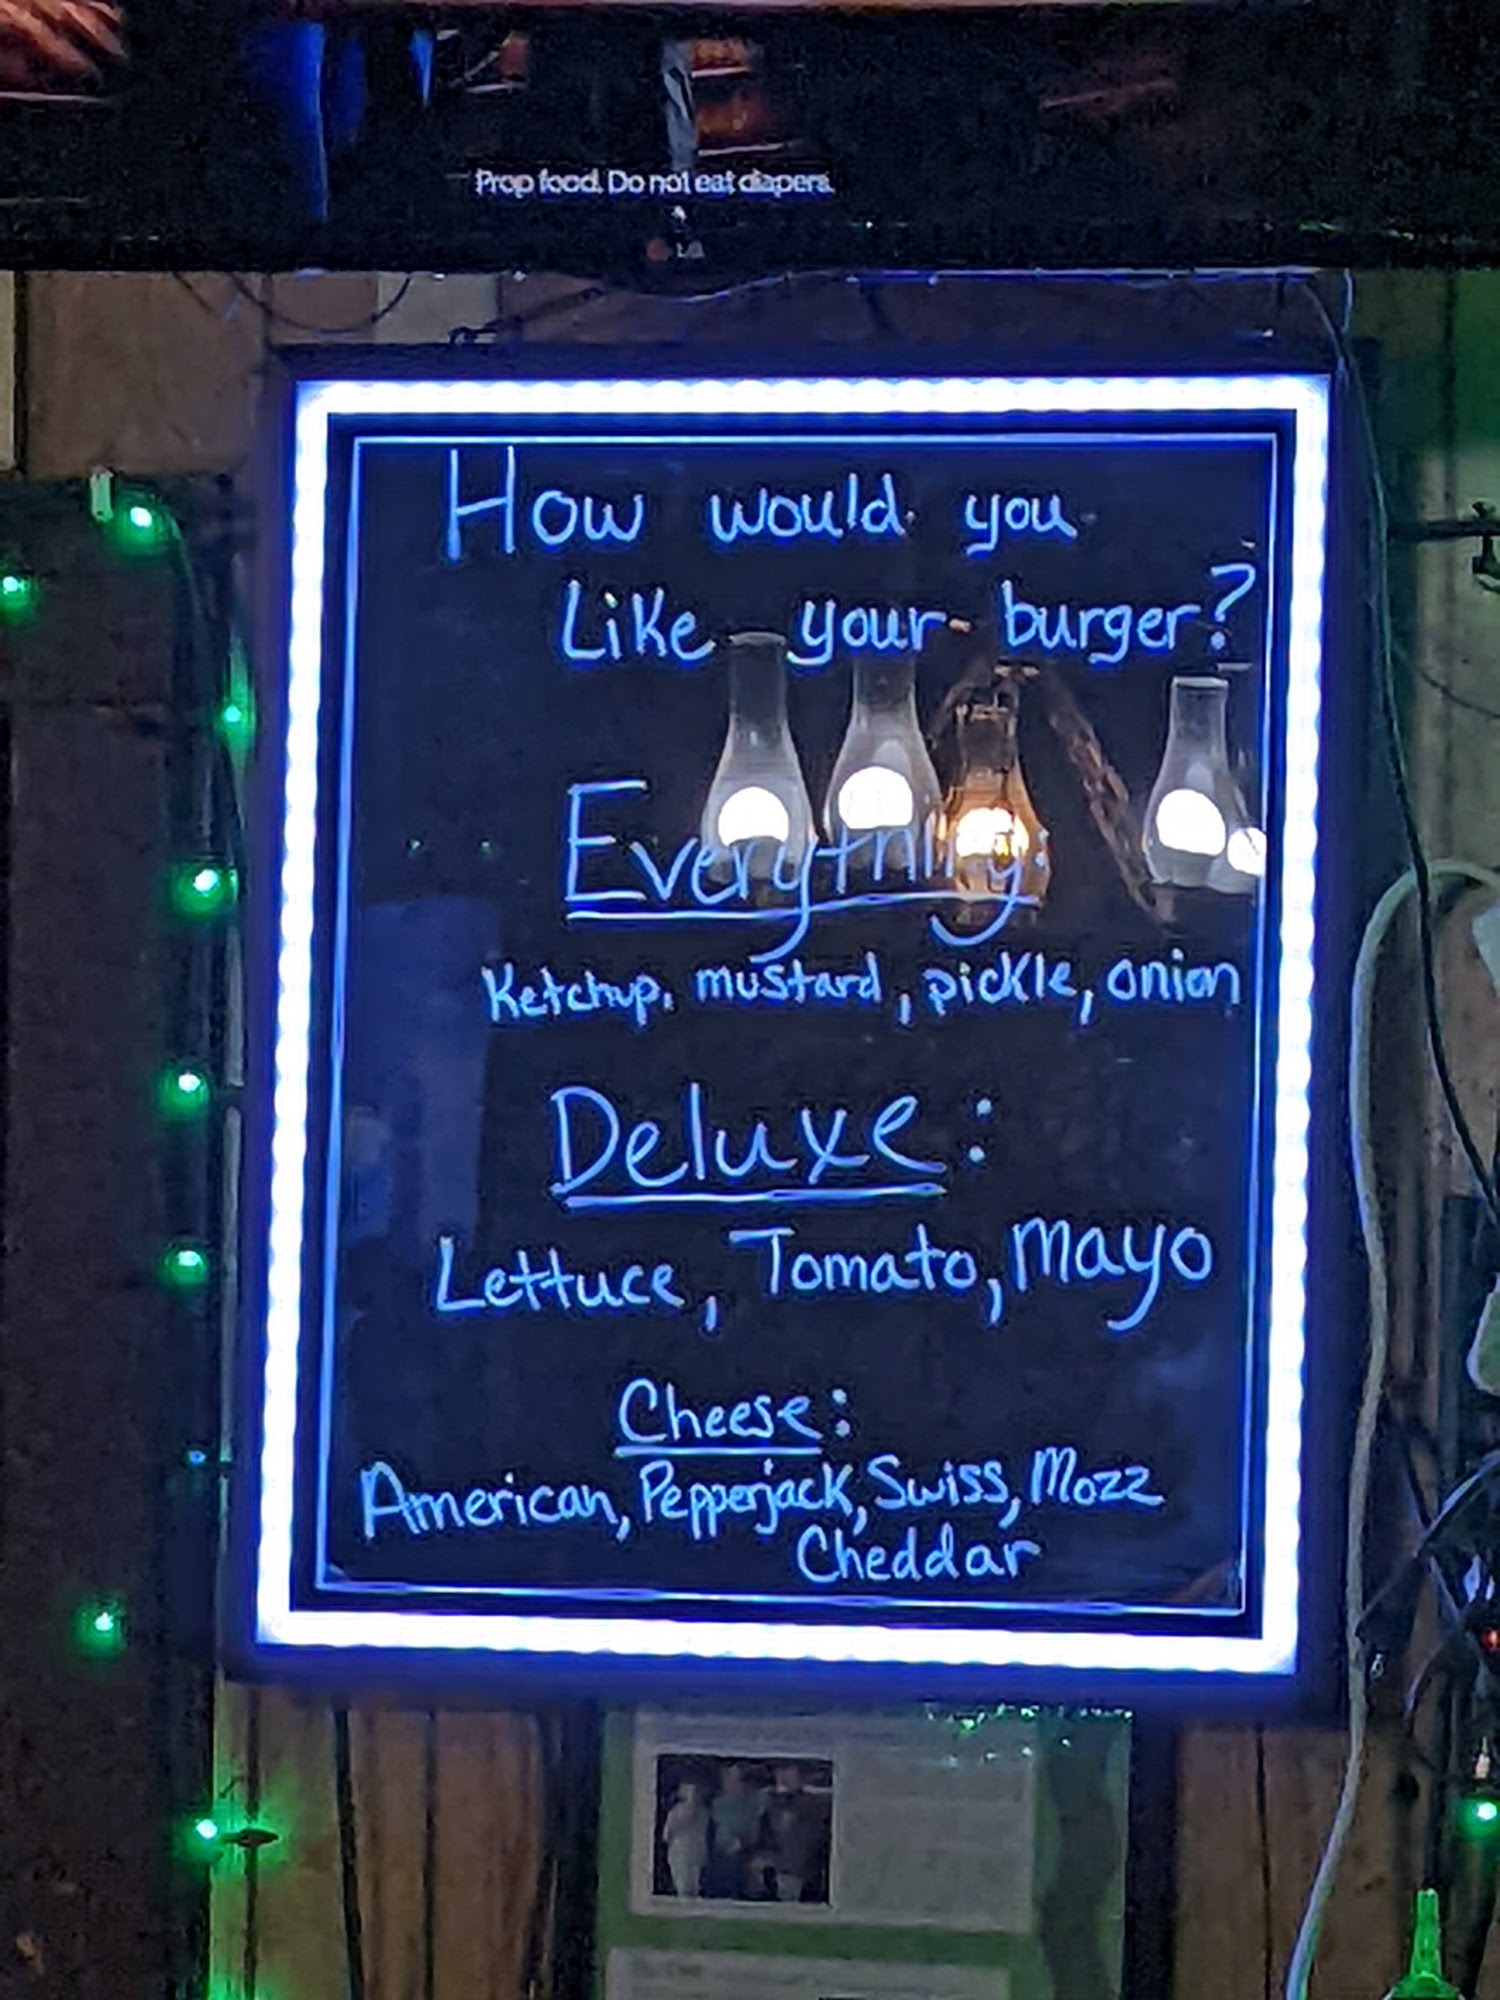 Prop food. Do not eat diapers.
LG
How would you
Like your burger?
Everything:
Ketchup, mustard, pickle, onion
Deluxe:
Lettuce, Tomato, Mayo
Cheese:
American, Pepperjack, Swiss, Mozz
Cheddar